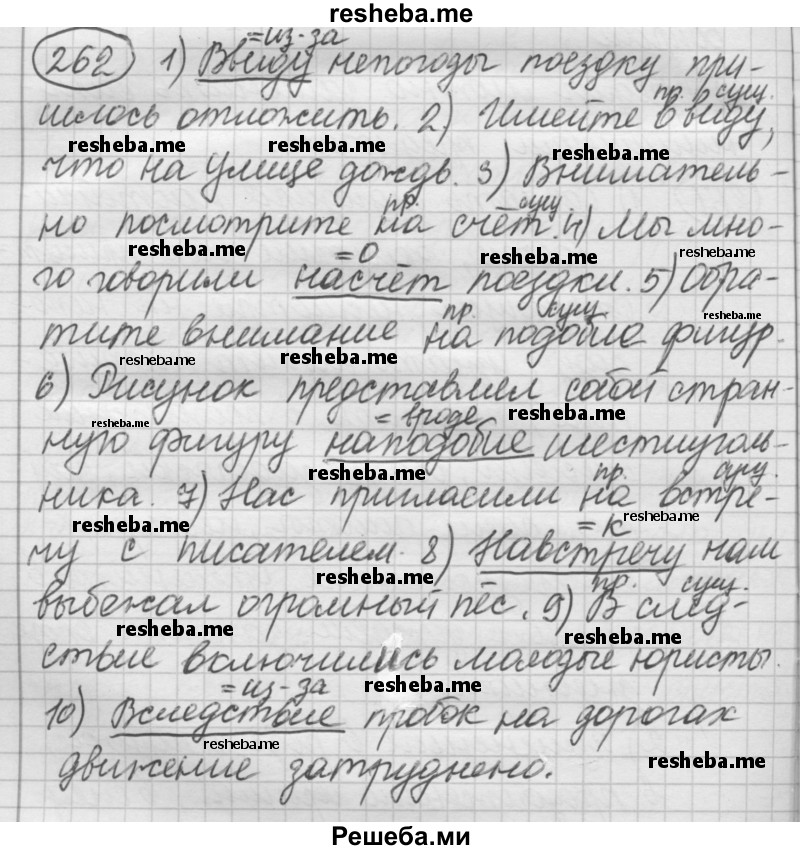 resheba.me
=из-за
262 1) Ввиду непогоды поездку при-
пр. сущ.
шлось отложить. 2) Имейте в виду,
resheba.me resheba.me resheba.me
что на улице дождь. 3) Вниматель-
пр. сущ.
но посмотрите на счёт. 4) Мы мно-
resheba.me resheba.me resheba.me
=о
го говорили насчёт поездки. 5) Обра-
пр. сущ. resheba.me
тите внимание на подобие фигур.
resheba.me resheba.me
6) Рисунок представлял собой стран-
resheba.me =вроде resheba.me
ную фигуру наподобие шестиуголь-
resheba.me пр. сущ.
ника. 7) Нас пригласили на встре-
resheba.me =к resheba.me
чу с писателем. 8) Навстречу нам
resheba.me пр. сущ.
выбежал огромный пёс. 9) В след-
resheba.me resheba.me
ствие включились молодые юристы.
=из-за resheba.me
10) Вследствие пробок на дорогах
resheba.me resheba.me
движение затруднено.
Решеба.ми